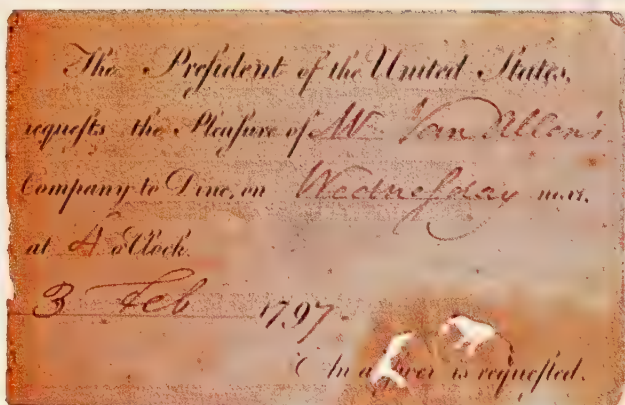 The Preſident of the United States,
requeſts the Pleaſure of Mr. Van Allen's
Company to Dine, on Wedneſday next,
at 4 o'Clock
3 Feb 1797.
An anſwer is requeſted.